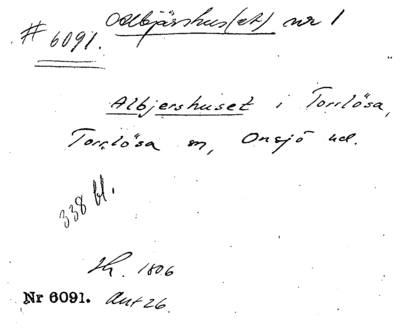 Odbjärshus(et) nr 1
# 6091.
Albjershuset i Torrlösa,
Torrlösa sn, Onsjö hd.
338 bl.
1806
Nr 6091. Ant 26.